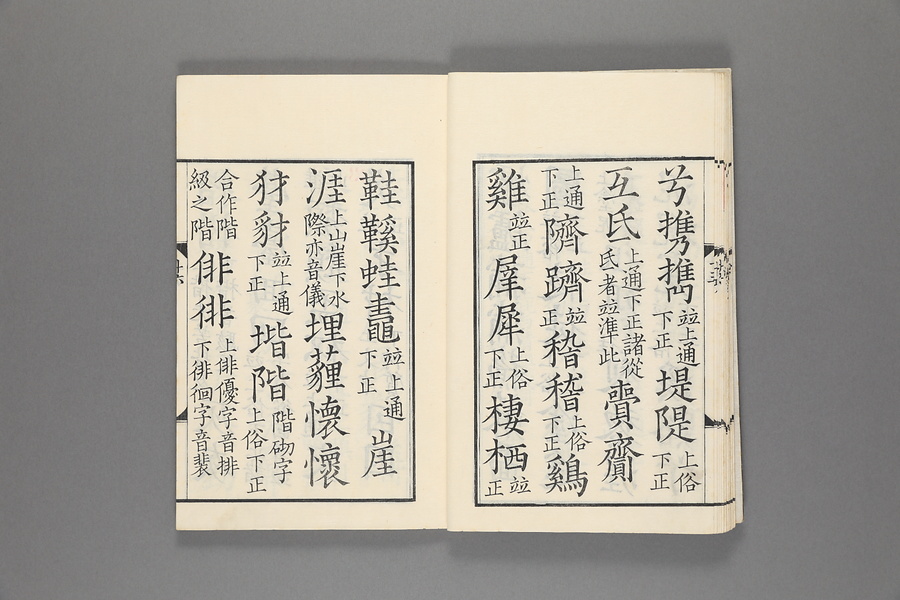 兮擕攜並上通下正堤隄上俗下正
互氐上通下正諸從氐者並準此賷齎
上通下正隮躋並正嵆稽上俗下正鷄
雞並正犀犀上俗下正棲栖並正
鞋鞵蛙鼃並上通下正崖
涯上山崖下水際亦音儀埋薶懐懷
犲豺並上通下正堦階階砌字上俗下正
合作階級之階俳徘上俳優字音排下徘徊字音裴